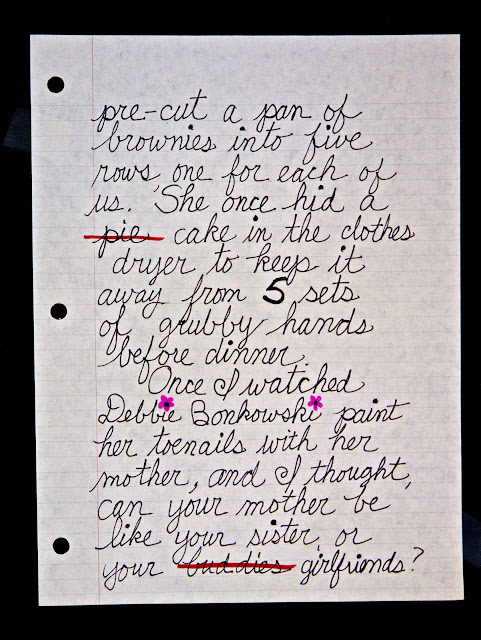 pre-cut a pan of
brownies into five
rows, one for each of
us. She once hid a
pie cake in the clothes
dryer to keep it
away from 5 sets
of grubby hands
before dinner.
Once I watched
Debbie Bonkowski paint
her toenails with her
mother, and I thought,
can your mother be
like your sister, or
your buddies girlfriends?